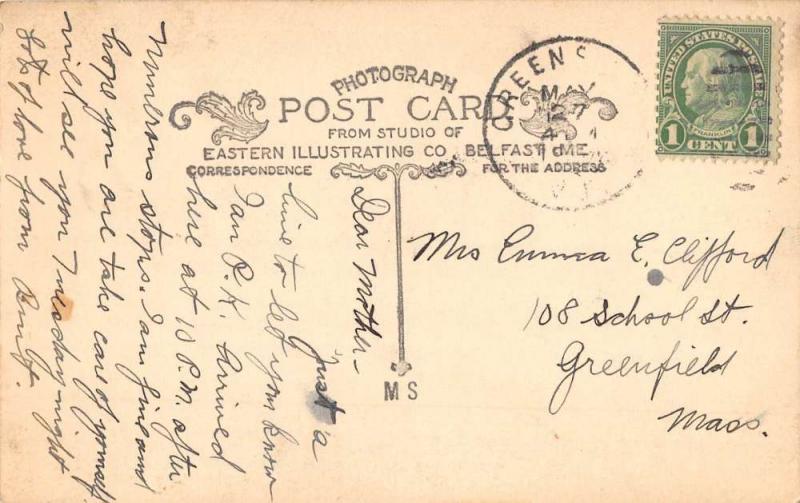 PHOTOGRAPH
POST CARD
FROM STUDIO OF
EASTERN ILLUSTRATING CO. BELFAST ME.
CORRESPONDENCE
FOR THE ADDRESS
MS
GREENS
MAY
UNITED STATES POSTAGE
FRANKLIN
1 CENT 1
Mrs Emma E. Clifford
108 School St.
Greenfield
Mass.
Dear Mother -
Just a
line to let you know
I am O.K. Arrived
here at 10 P.M. after
numerous stops. I am fine and
hope you are take care of yourself
will see you Tuesday night
Lots of love from